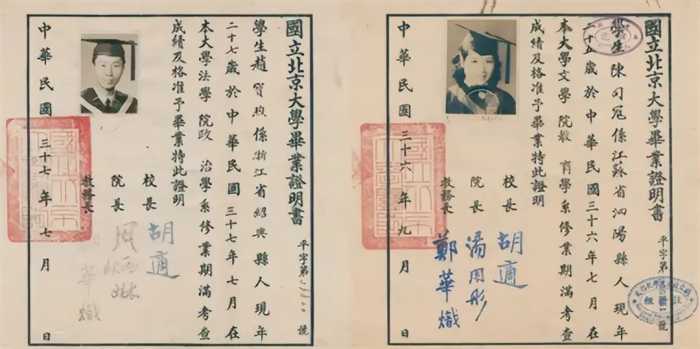 國立北京大學畢業證明書
平字第 號
學生趙寶煦係浙江省紹興縣人現年
二十七歲於中華民國三十七年七月在
本大學法學院政治學系修業期滿考查
成績及格准予畢業特此證明
校長 胡適
院長 周炳琳
教務長 鄭華熾
中華民國三十七年七月 日
國立北京大學畢業證明書
平字第 號
學生陳司寇係江蘇省泗陽縣人現年
二十五歲於中華民國三十六年七月在
本大學文學院教育學系修業期滿考查
成績及格准予畢業特此證明
校長 胡適
院長 湯用彤
教務長 鄭華熾
中華民國三十六年九月 日